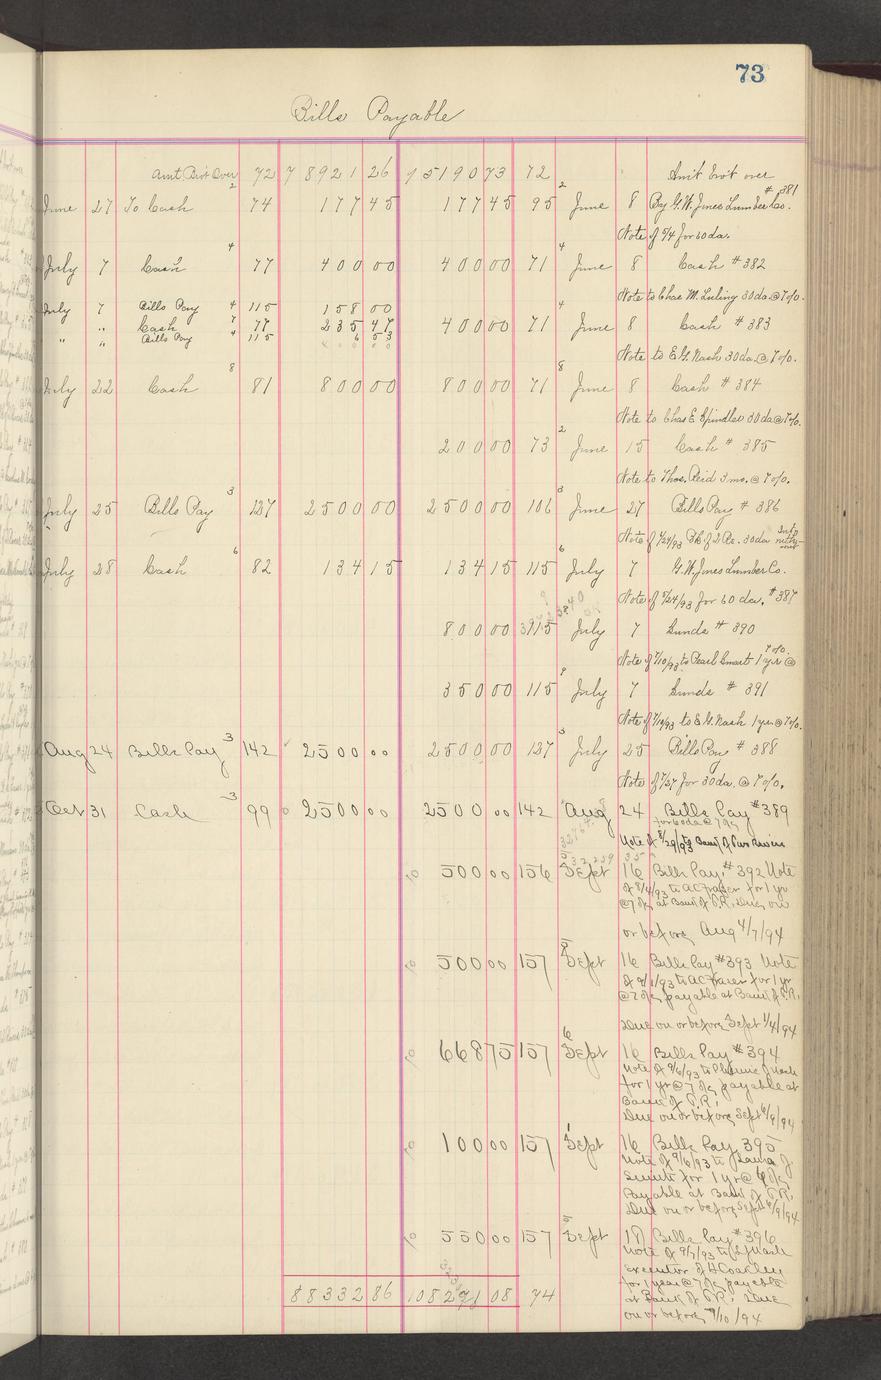 73
Bills Payable
Amt Brot Over 72 7 8921 26 9 5190 73 72 Amt brot over
June 27 To Cash 2 74 177 45 177 45 95 2 June 8 By G.W. Jones Lumber Co. #381
Note of 5/4 for 60 da.
July 7 Cash 4 77 400 00 400 00 71 4 June 8 Cash #382
Note to Chas M. Luling 30 da @ 7%.
July 7 Bills Pay 4 115 158 00
" " Cash 7 77 235 47 400 00 71 4 June 8 Cash #383
" " Bills Pay 4 115 6 53
Note to E.G. Nash 30 da. @ 7%.
July 22 Cash 8 81 800 00 800 00 71 8 June 8 Cash #384
Note to Chas E Spindler 30 da @ 7%.
200 00 73 2 June 15 Cash #385
Note to Thos. Reid 3 mo. @ 7%.
July 25 Bills Pay 3 127 2500 00 2500 00 106 3 June 27 Bills Pay #386
Note of 7/24/93 30 da
July 28 Cash 6 82 134 15 134 15 115 6 July 7 G.W. Jones Lumber Co.
Note of 5/24/93 for 60 da. #387
800 00 115 July 7 Sunds #390
Note of 7/10/93 to Pearl Smart 1 yr @ 7%.
350 00 115 9 July 7 Sunds #391
Note of 7/10/93 to E.G. Nash 1 yr @ 7%.
Aug 24 Bills Pay 3 142 2500 00 2500 00 127 3 July 25 Bills Pay #388
Note of 7/27 for 30 da. @ 7%.
Oct 31 Cash 3 99 2500 00 2500 00 142 Aug 24 Bills Pay #389
for 60 da @ 7%
Note of 8/29/93 to Bank of
500 00 156 5 Sept 16 Bills Pay, #392 Note
of 8/4/93 to AC for 1 yr
@ 7% at Bank of P.R. Due on
or before Aug 4/7/94
500 00 157 8 Sept 16 Bills Pay #393 Note
to AC for 1 yr
@ 7% payable at Bank of P.R.
Due on or before Sept 1/4/94
668 75 157 6 Sept 16 Bills Pay #394
Note of 9/6/93 to
for 1 yr @ 7% payable at
Bank of P.R.
Due on or before Sept 6/9/94
100 00 157 1 Sept 16 Bills Pay 395
Note of 9/6/93 to Laura J
for 1 yr @
Payable at Bank of P.R.
Due on or before Sept 6/9/94
550 00 157 5 Sept 18 Bills Pay #396
Note of 9/7/93 to Nash
Executor of
for 1 year @ 7% payable
at Bank of P.R. Due
on or before 7/10/94
8 8332 86 108271 08 74